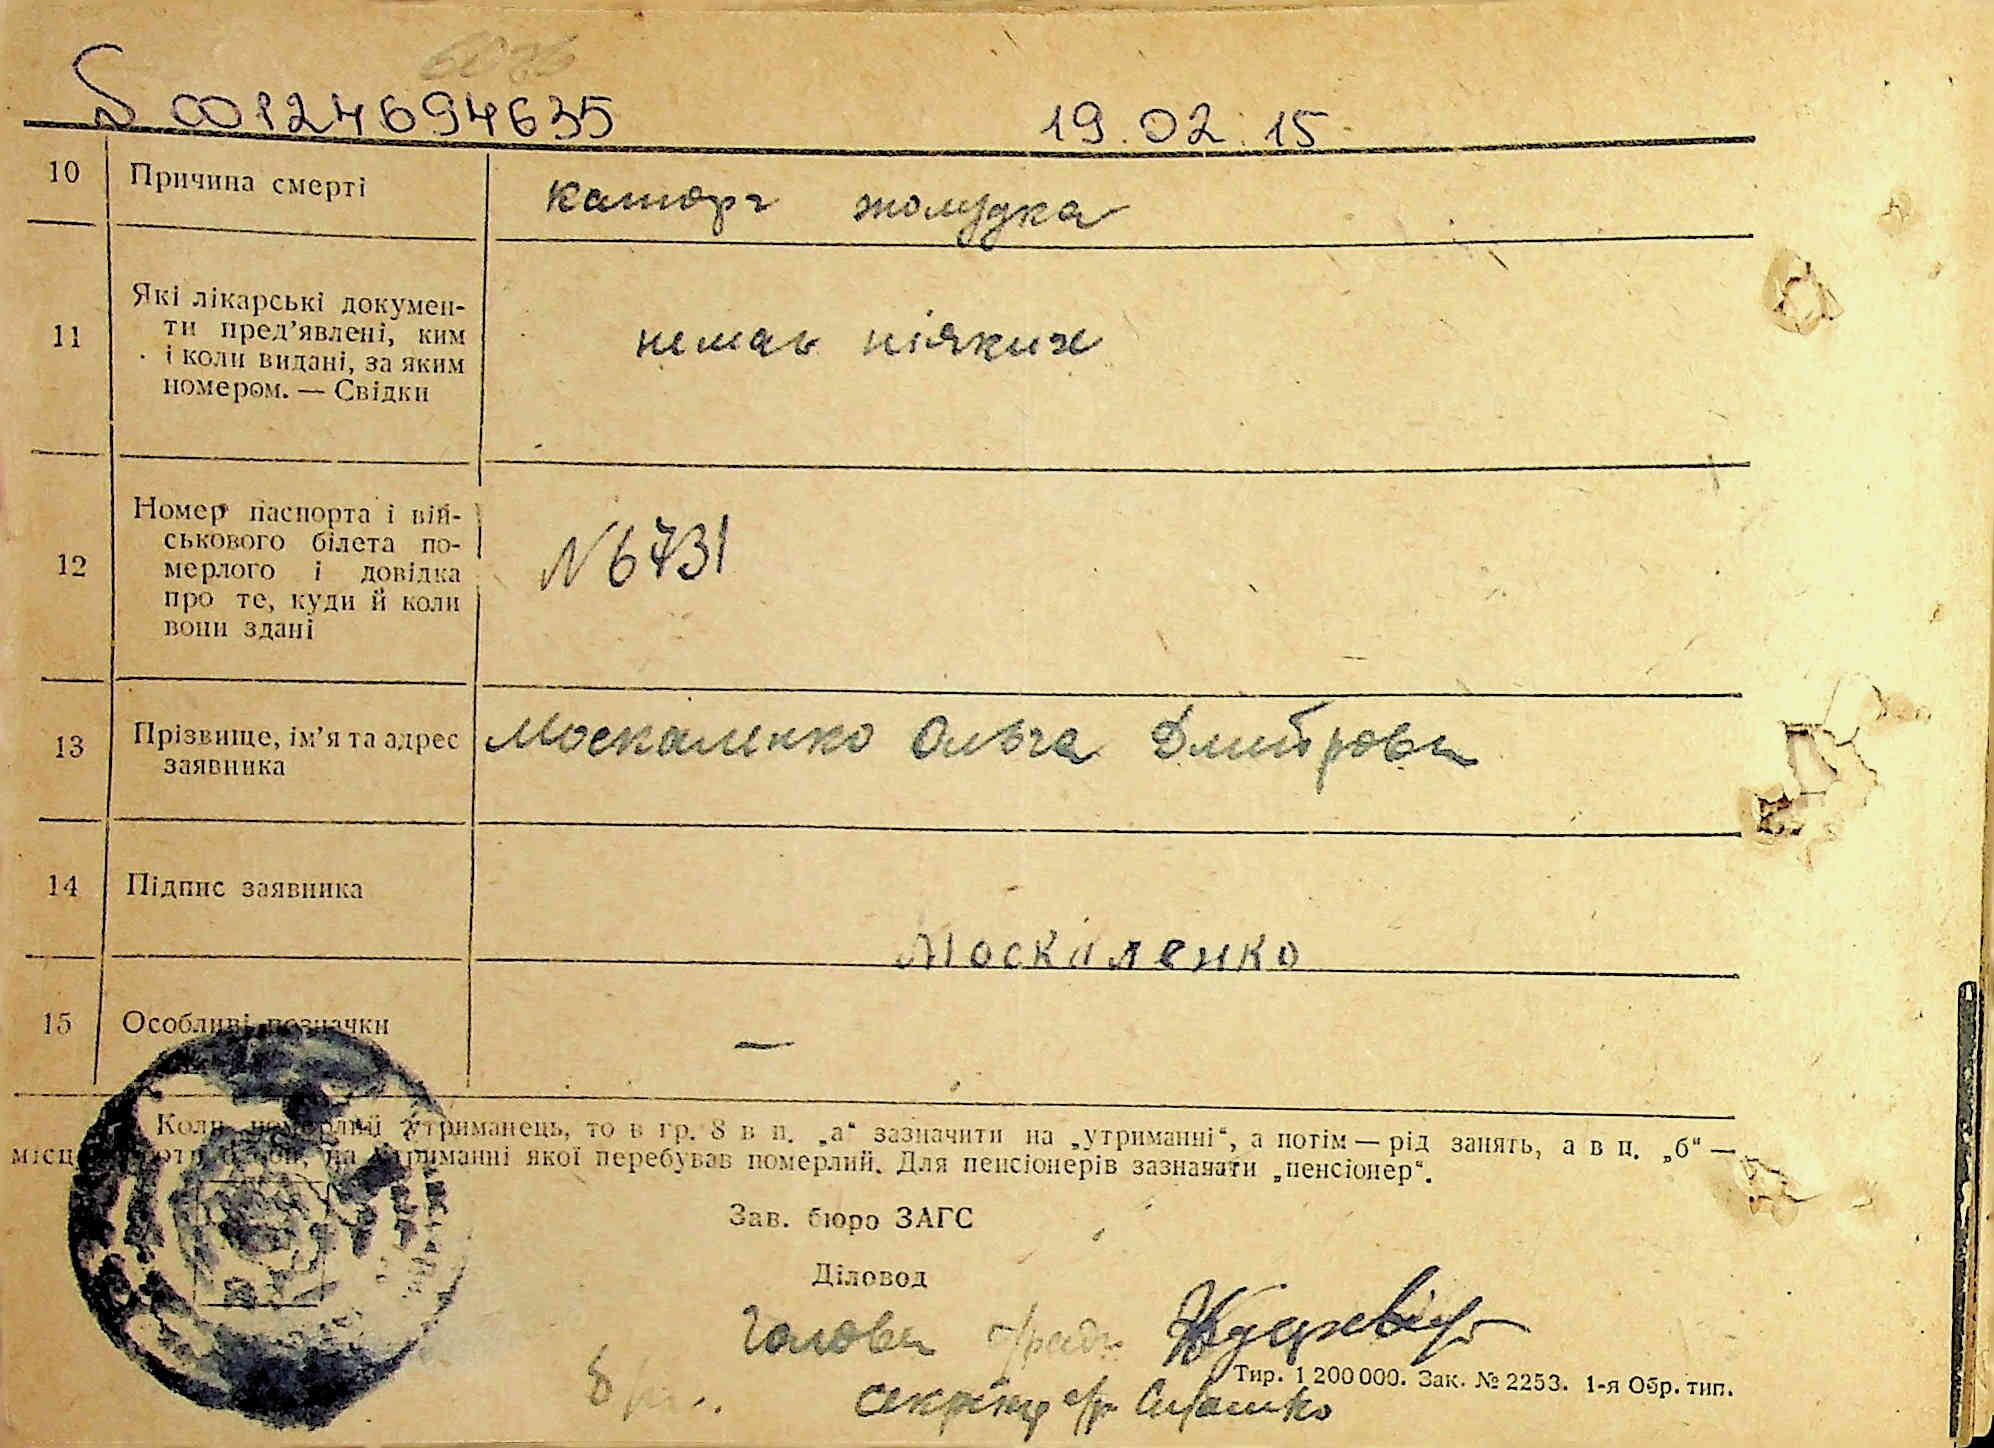 00124694635 19.02.15
10 Причина смерті катарг жолудка
11 Які лікарські докумен-
ти пред’явлені, ким
і коли видані, за яким
номером. — Свідки
немає ніяких
12 Номер паспорта і вій-
ськового білета по-
мерлого і довідка
про те, куди й коли
вони здані
N 6731
13 Прізвище, ім’я та адрес
заявника
Москаленко Ольга Дмитровн
14 Підпис заявника
Москаленко
15 Особливі позначки —
Коли померлий утриманець, то в гр. 8 в п. „а“ зазначити на „утриманні“, а потім — рід занять, а в п. „б“ —
на утриманні якої перебував померлий. Для пенсіонерів зазначати „пенсіонер“.
Зав. бюро ЗАГС
Діловод
Голова
Тир. 1 200 000. Зак. № 2253. 1-я Обр. тип.